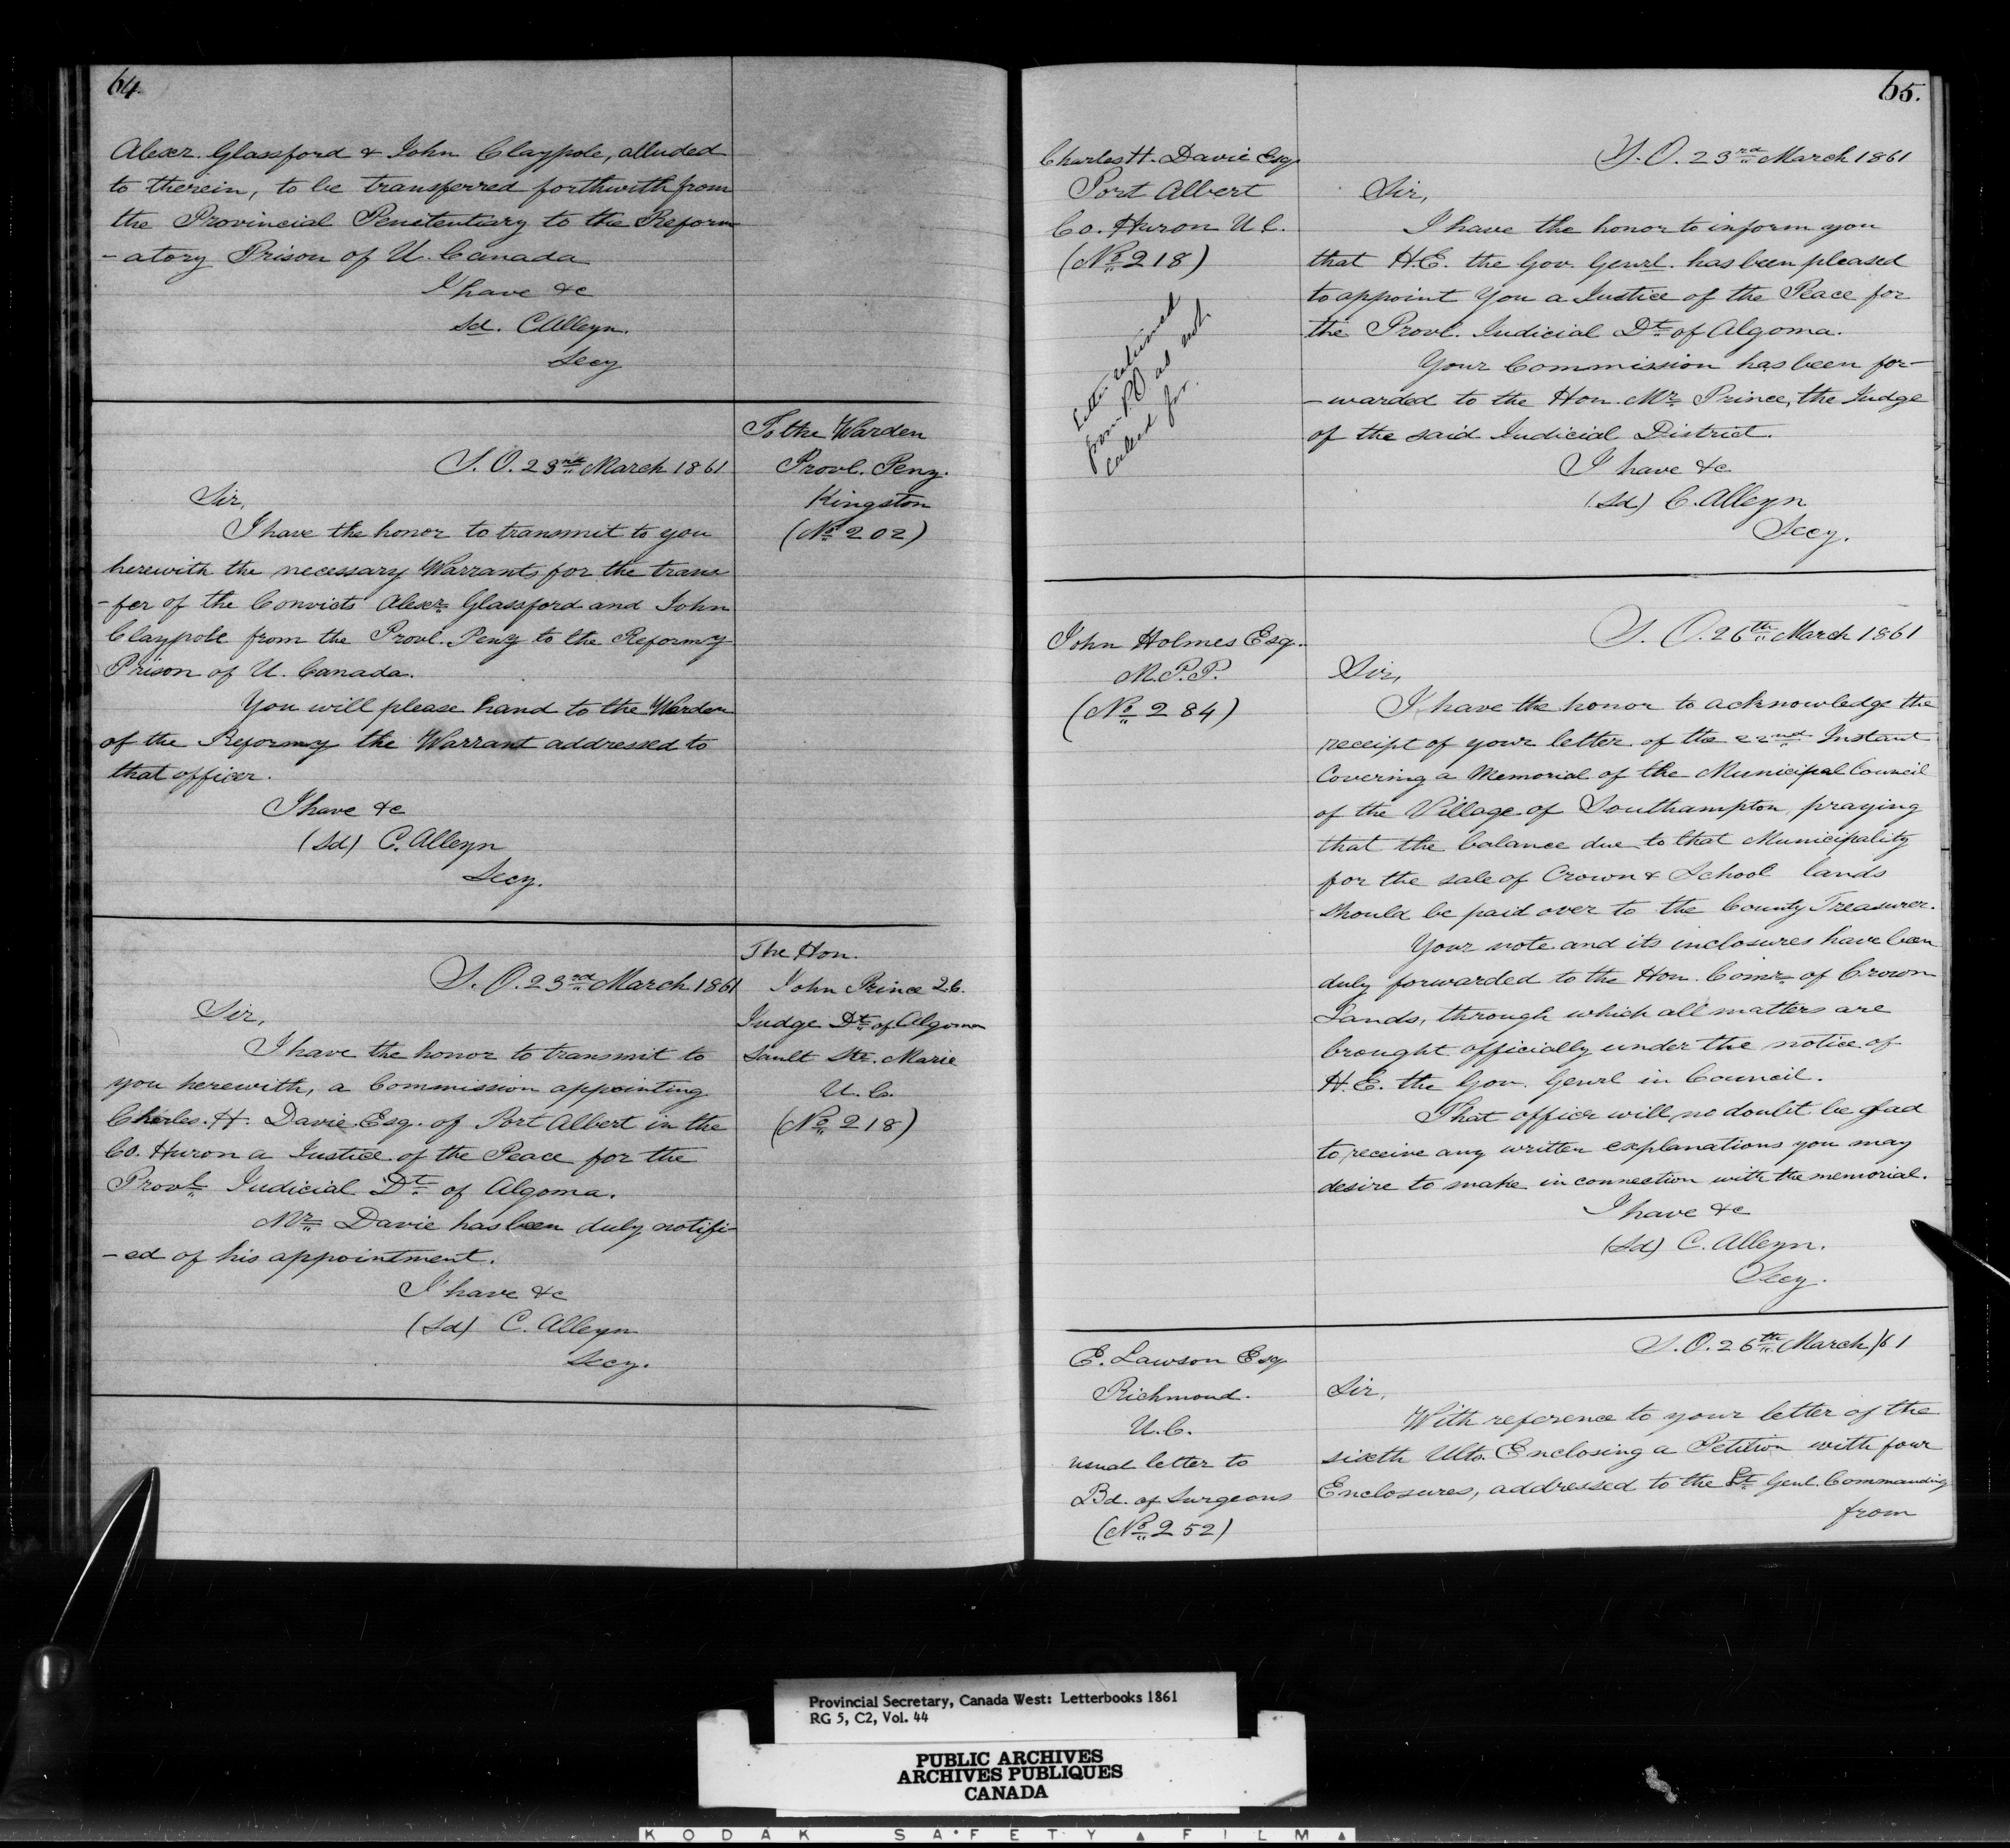 64.
Alexr. Glassford & John Claypole, alluded
to therein, to be transferred forthwith from
the Provincial Penitentiary to the Reform
-atory Prison of U. Canada
I have &c
Sd. C Alleyn.
Secy
To the Warden
Provl. Peny.
Kingston
(No. 202)
S. O. 23rd March 1861
Sir,
I have the honor to transmit to you
herewith the necessary Warrants for the trans
-fer of the Convicts Alexr. Glassford and John
Claypole from the Provl. Peny to the Reformy
Prison of U. Canada.
You will please hand to the Warden
of the Reformy the Warrant addressed to
that officer.
I have &c
(Sd) C. Alleyn
Secy.
The Hon.
John Prince Q.C.
Judge Dt. of Algoma
Sault Ste. Marie
U. C.
(No. 218)
S. O. 23rd March 1861
Sir,
I have the honor to transmit to
you herewith, a Commission appointing
Charles. H. Davie Esq. of Port Albert in the
Co. Huron a Justice of the Peace for the
Provl. Judicial Dt. of Algoma.
Mr. Davie has been duly notifi-
-ed of his appointment.
I have &c
(Sd) C. Alleyn
Secy.
65.
Charles H. Davie Esq
Port Albert
Co. Huron U C.
(No. 218)
Letter returned
from P O as not
called for.
S. O. 23rd March 1861
Sir,
I have the honor to inform you
that H.E. the Gov. Genrl. has been pleased
to appoint You a Justice of the Peace for
the Provl. Judicial Dt. of Algoma.
Your Commission has been for-
-warded to the Hon. Mr. Prince, the Judge
of the said Judicial District.
I have &c
(Sd) C. Alleyn
Secy.
John Holmes Esq.
M.P.P.
(No. 284)
S. O. 26th March 1861
Sir,
I have the honor to acknowledge the
receipt of your letter of the 22nd Instant
Covering a Memorial of the Municipal Council
of the Village of Southampton, praying
that the balance due to that Municipality
for the sale of Crown & School lands
should be paid over to the County Treasurer.
Your note and its inclosures have been
duly forwarded to the Hon. Comr. of Crown
Lands, through which all matters are
brought officially under the notice of
H. E. the Gov. Genrl in Council.
That office will no doubt be glad
to receive any written explanations you may
desire to make in connection with the memorial.
I have &c
(Sd) C. Alleyn.
Secy.
E. Lawson Esq
Richmond.
U. C.
usual letter to
Bd. of Surgeons
(No. 252)
S. O. 26th March /61
Sir,
With reference to your letter of the
sixth Ulto. Enclosing a Petition with four
Enclosures, addressed to the Lt. Genl. Commanding
from
Provincial Secretary, Canada West: Letterbooks 1861
RG 5, C2, Vol. 44
PUBLIC ARCHIVES
ARCHIVES PUBLIQUES
CANADA
KODAK SAFETY FILM